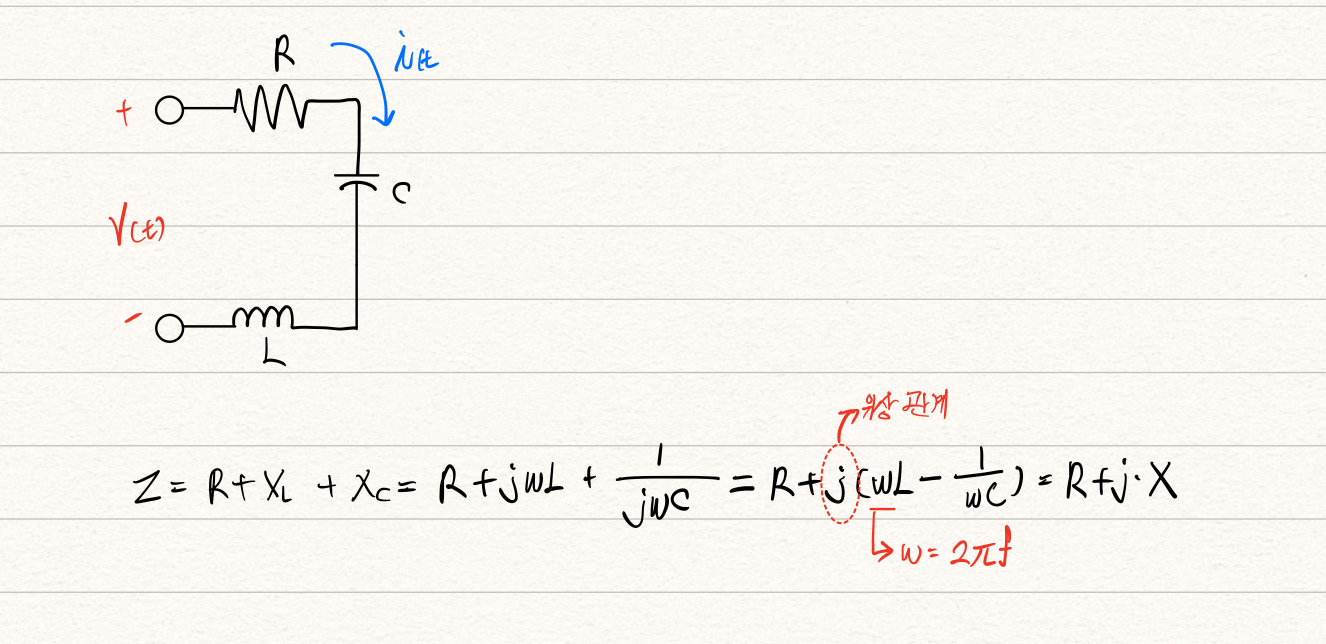 R
i(t)
+
C
V(t)
-
L
위상 관계
Z = R + X_L + X_C = R + jwL + 1/(jwC) = R + j(wL - 1/(wC)) = R + j·X
w = 2πf